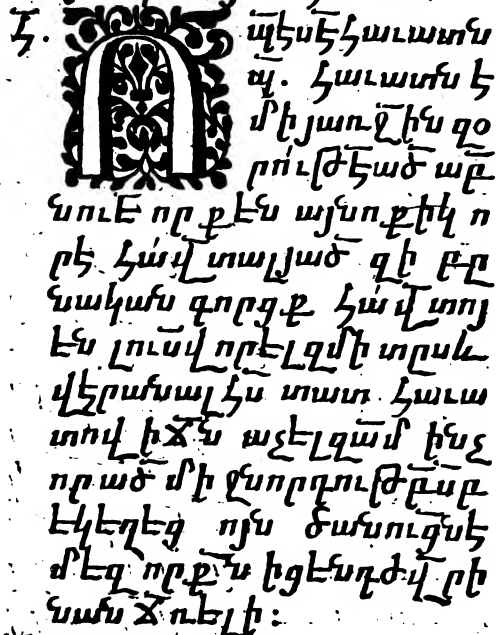 Հ. Ա պէս է Հաւատն
պ. Հաւատն է
մի յառջին զօ
րութեած աբ
նուէ որ քէն այնոքիկ ո
րէ Հավտալյած զի բը
նական գործք Հավտոյ
են լուսվորելզմիտըսև
վէրանալ Հն տատ Հաւա
տով իՃն աչելզամ ինչ
որ ած մի ջնորդութբնը
եկեղեց ոյն ծանուցնէ
մեզ որք ն իցենդժվրի
նան Ճռելի: